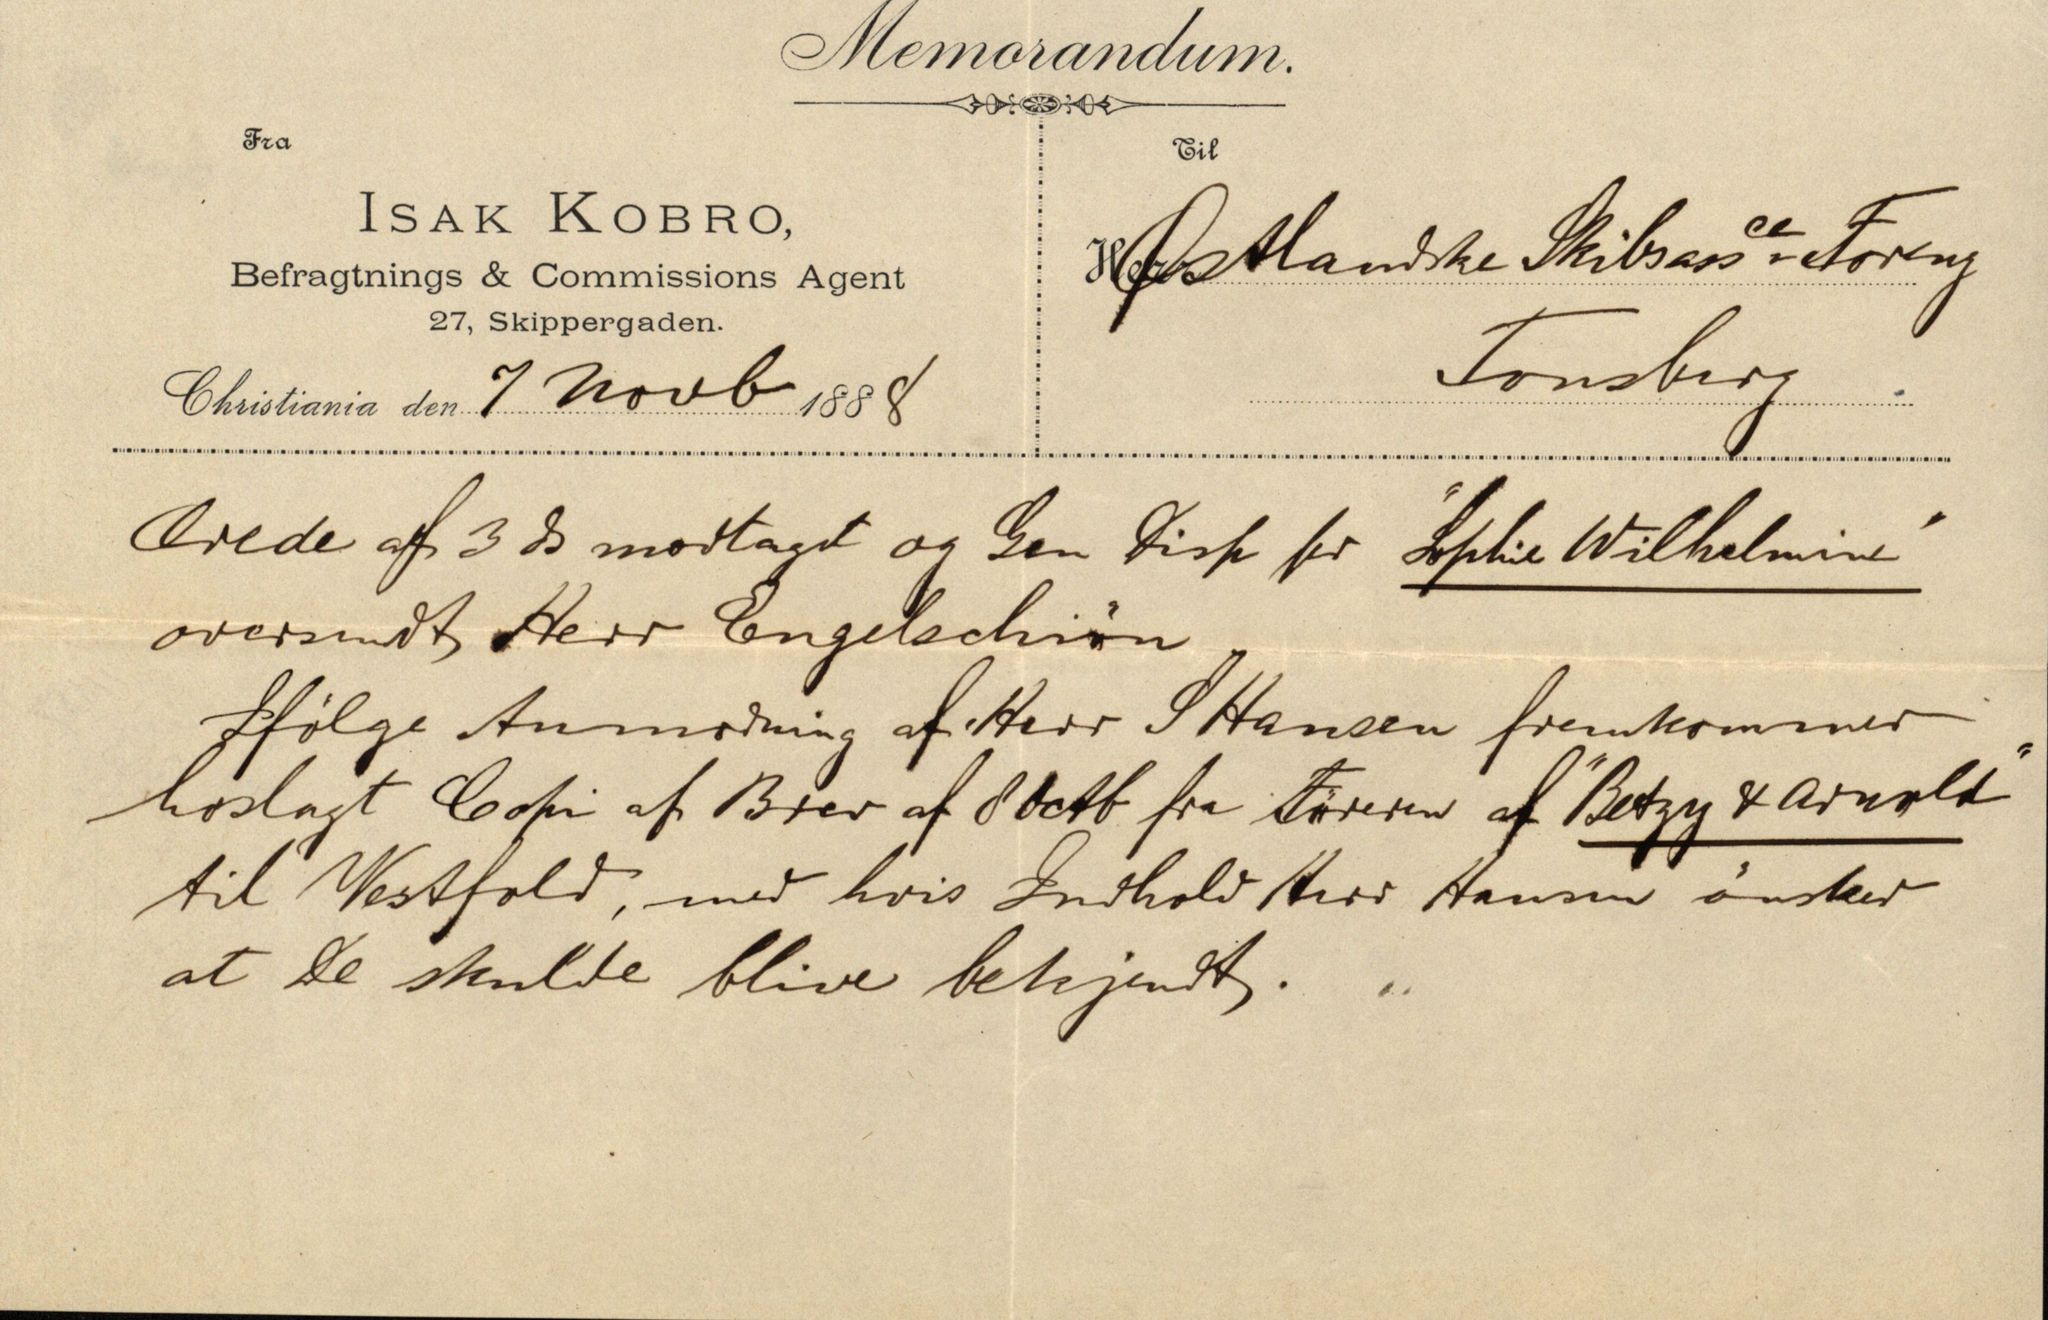 Memorandum.
Fra
Til
ISAK KOBRO,
Befragtnings & Commissions Agent
27, Skippergaden.
Christiania den 7 Novb 1888
Herr Østlandske Skibsassce-Foreng
Tønsberg
Ærede af 3 ds modtagt og Gen Disp for "Sophie Wilhelmine"
oversendt Herr Engelschiön
Ifölge Anmodning af Herr S Hansen fremkommer
hoslagt Copi af Brev af 8 Octb fra Föreren af "Betzy & Arnold"
til Vestfold, med hvis Indhold Herr Hansen önsker
at De skulde blive bekjendt.